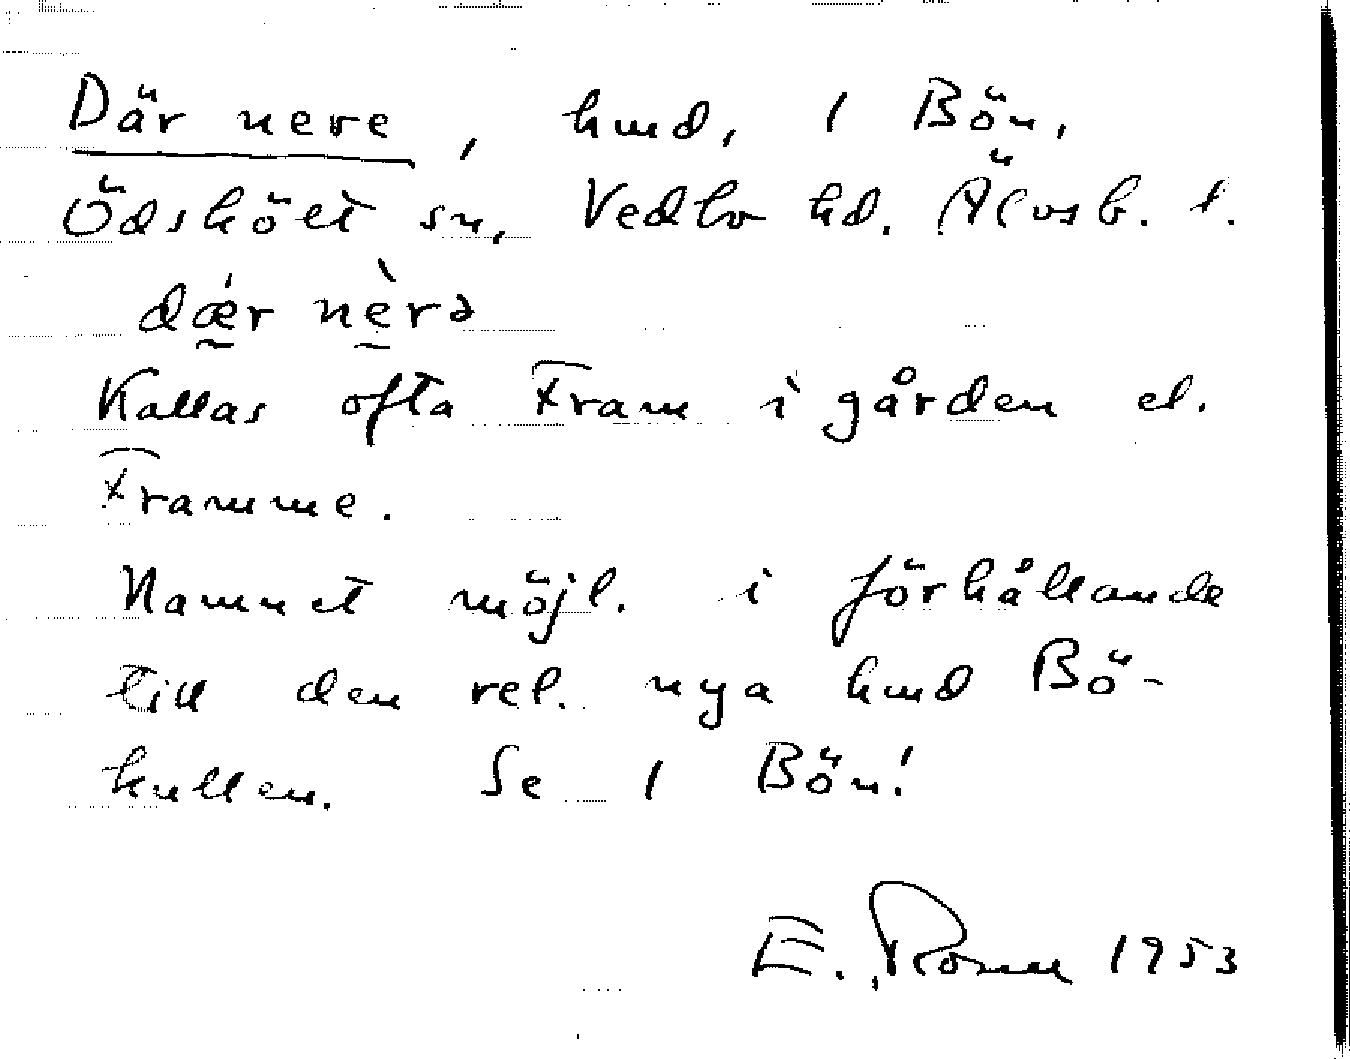 Där nere, hmd, 1 Bön,
Ödsköлt sn, Vedbo hd. Älvsb. l.
dǽr nèrə
Kallas ofta Fram i gården el.
Framme.
Namnet möjl. i förhållande
till den rel. nya hmd Bö-
kullen. Se 1 Bön!
E. 1953